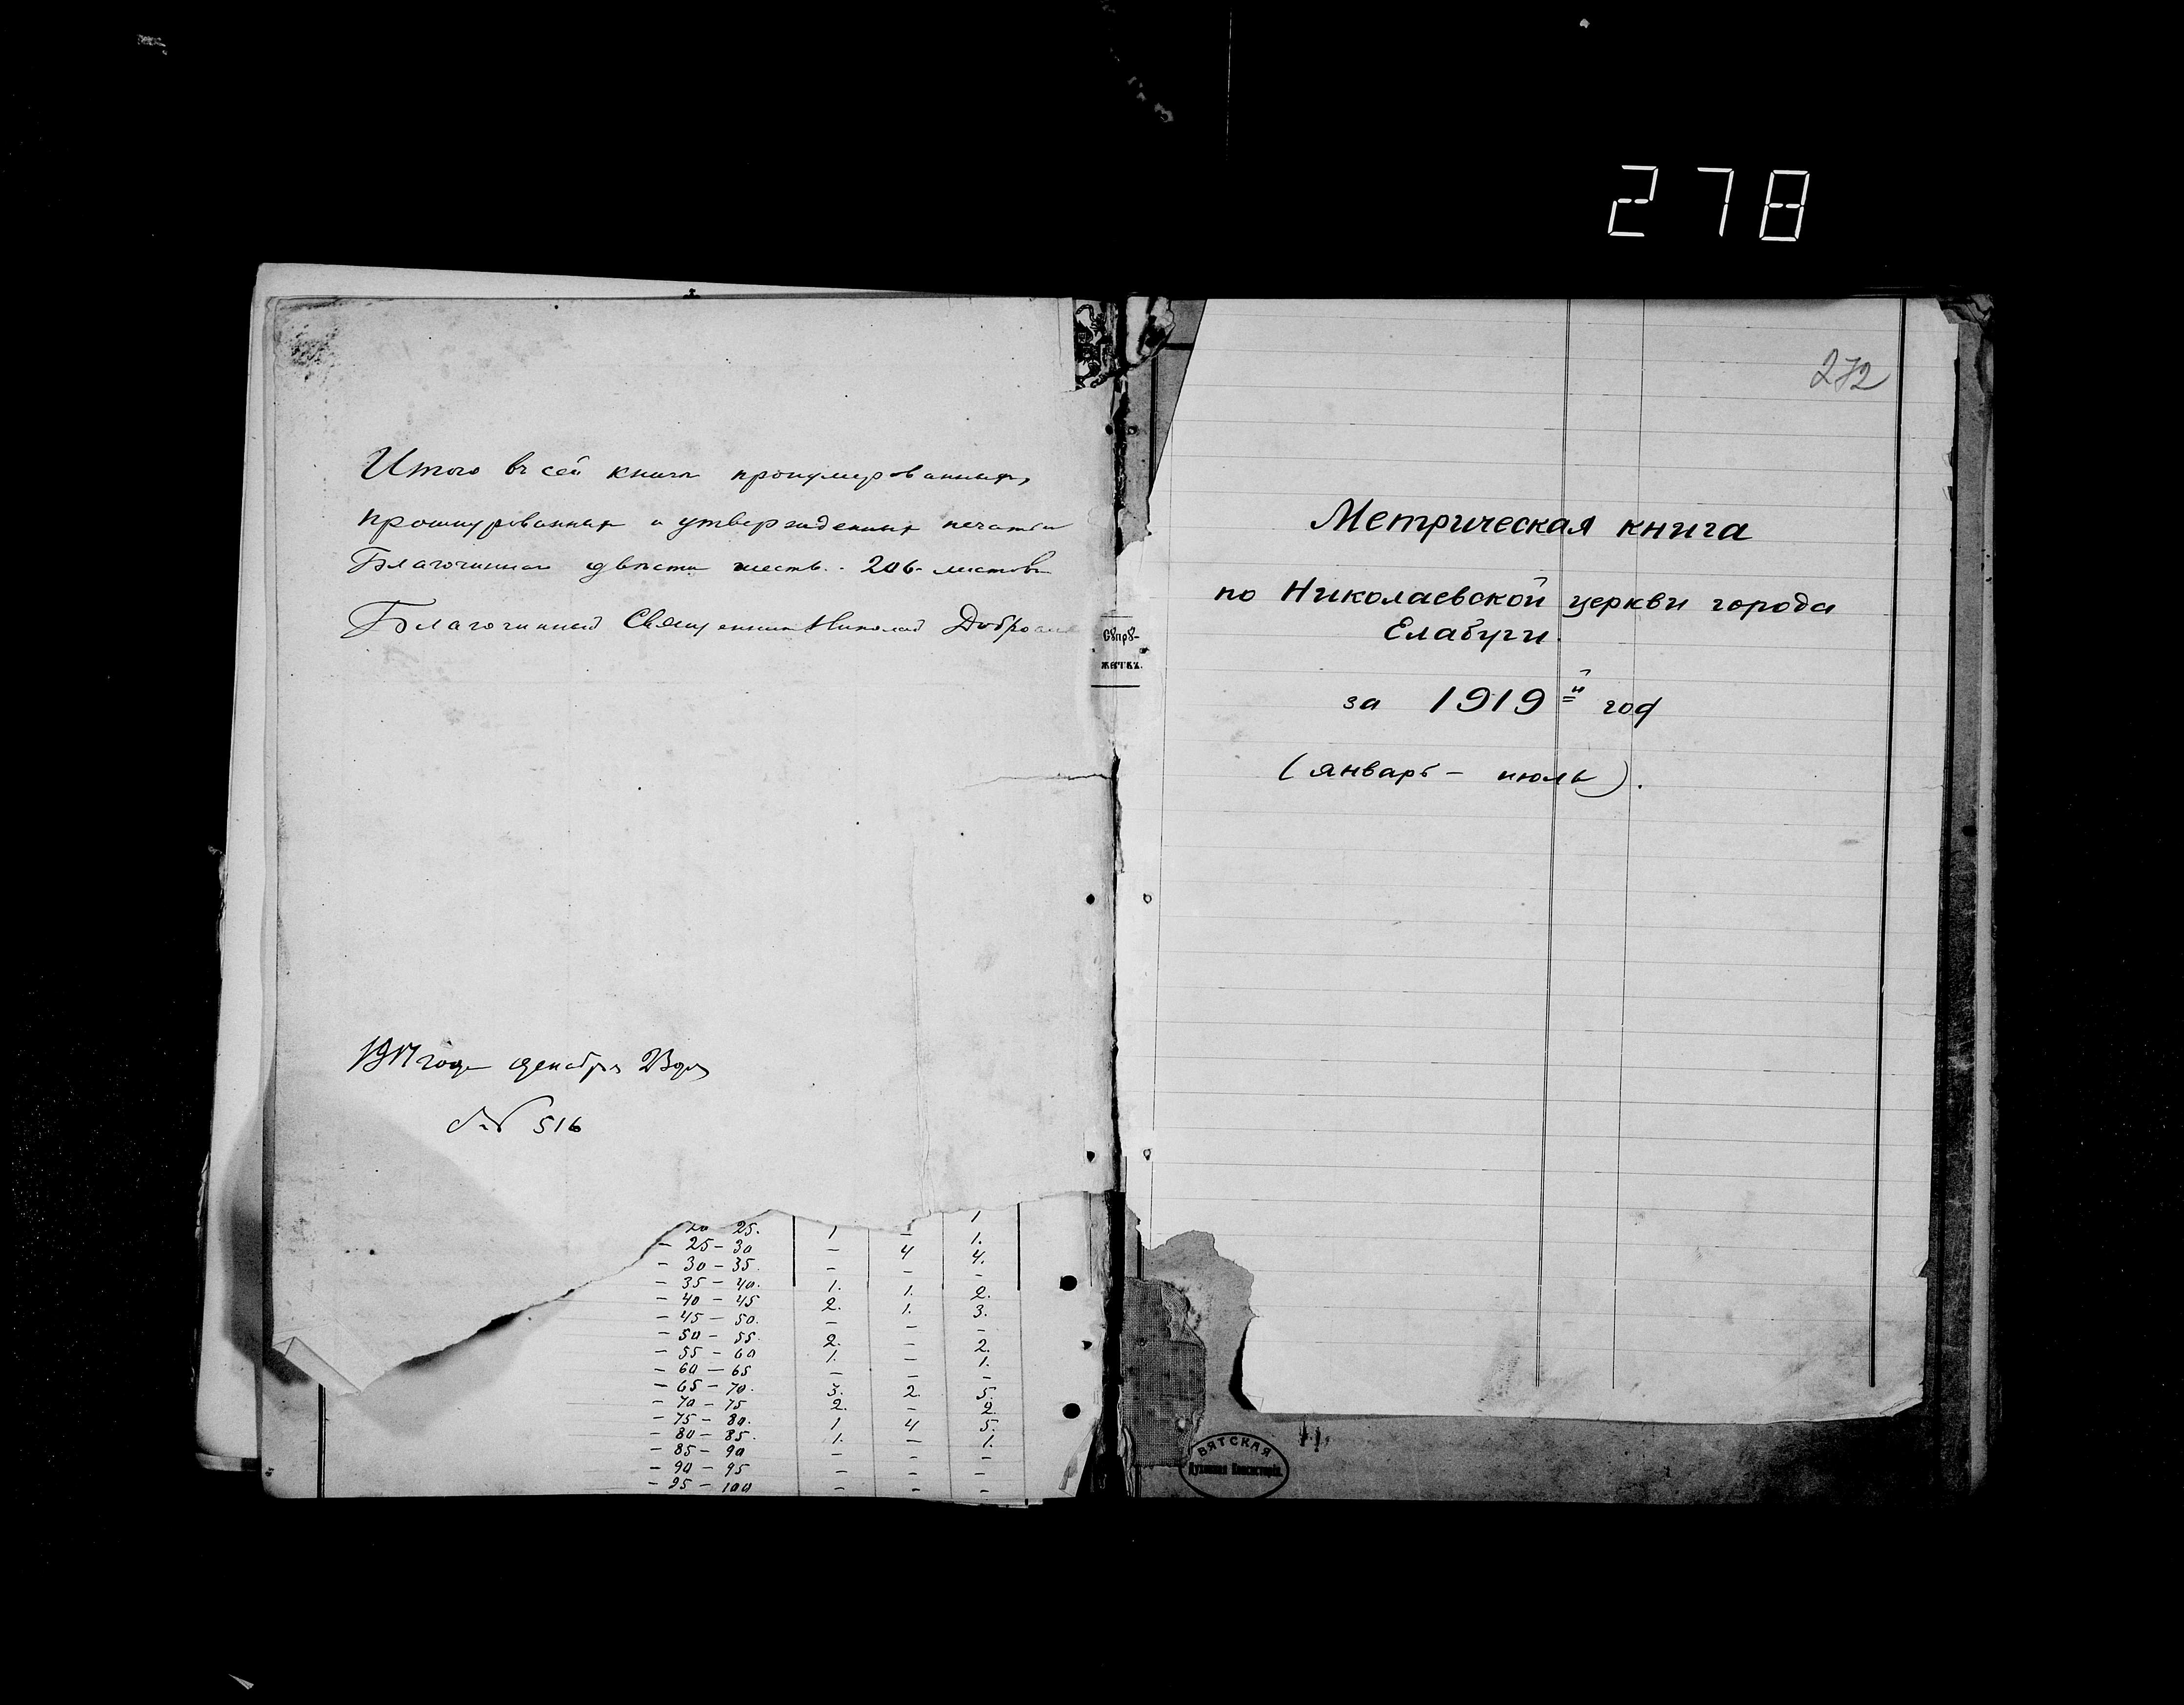 278
Итого въ сей книге пронумерованныхъ,
прошнурованныхъ и утвержденныхъ печатью
Благочиннаго двѣсти шесть - 206 - листовъ
Благочинный Священникъ Николай
1917 года декабря 23 дня
№ 516
Супру-
жествъ.
20 – 25. 1 – 1.
– 25 – 30 – 4 4.
– 30 – 35. – – –
– 35 – 40. 1. 1. 2.
– 40 – 45 2. 1. 3.
– 45 – 50. – – –
– 50 – 55. 2. – 2.
– 55 – 60 1. – 1.
– 60 – 65 – – –
– 65 – 70. 3. 2. 5.
– 70 – 75 2. – 2.
– 75 – 80. 1 4 5.
– 80 – 85. 1. – 1.
– 85 – 90 – – –
– 90 – 95 – – –
– 95 – 100 – – –
272
Метрическая книга
по Николаевской церкви города
Елабуги.
за 1919й год
(январь – июль).
ВЯТСКАЯ
Духовная Консисторія.